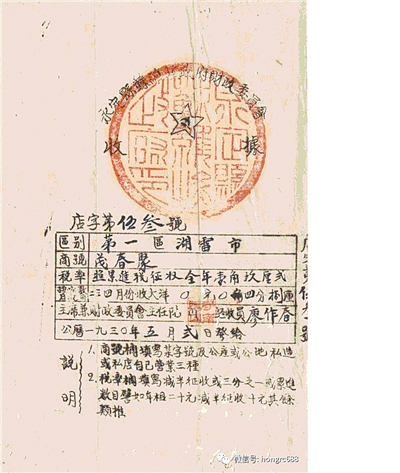 永定縣蘇維埃政府財政委員會
收據
店字第伍叁號
區别 第一區湖雷市
商號 茂春聚
税率 照累進税征收全年角玖厘弍
二三四月份收大洋〇元〇角四分捌厘
主席兼財政委員會主任阮 收員廖作春
公曆一九三〇年五月弍日發給
説明
1. 商號欄填寫某字號及公産或公地私造
或私店自己營業三種
2. 税率欄填寫减半征收或三分之一或累進
數目譬如年租二十元减半征收十元其餘
類推
微信号: hongrc688